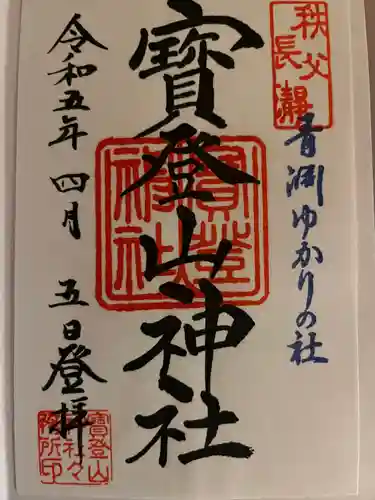 秩父
長瀞
青淵ゆかりの社
寳登山神社
寳登
神社
令和五年 四月 五日登拝
寳登山
神社々
務所印